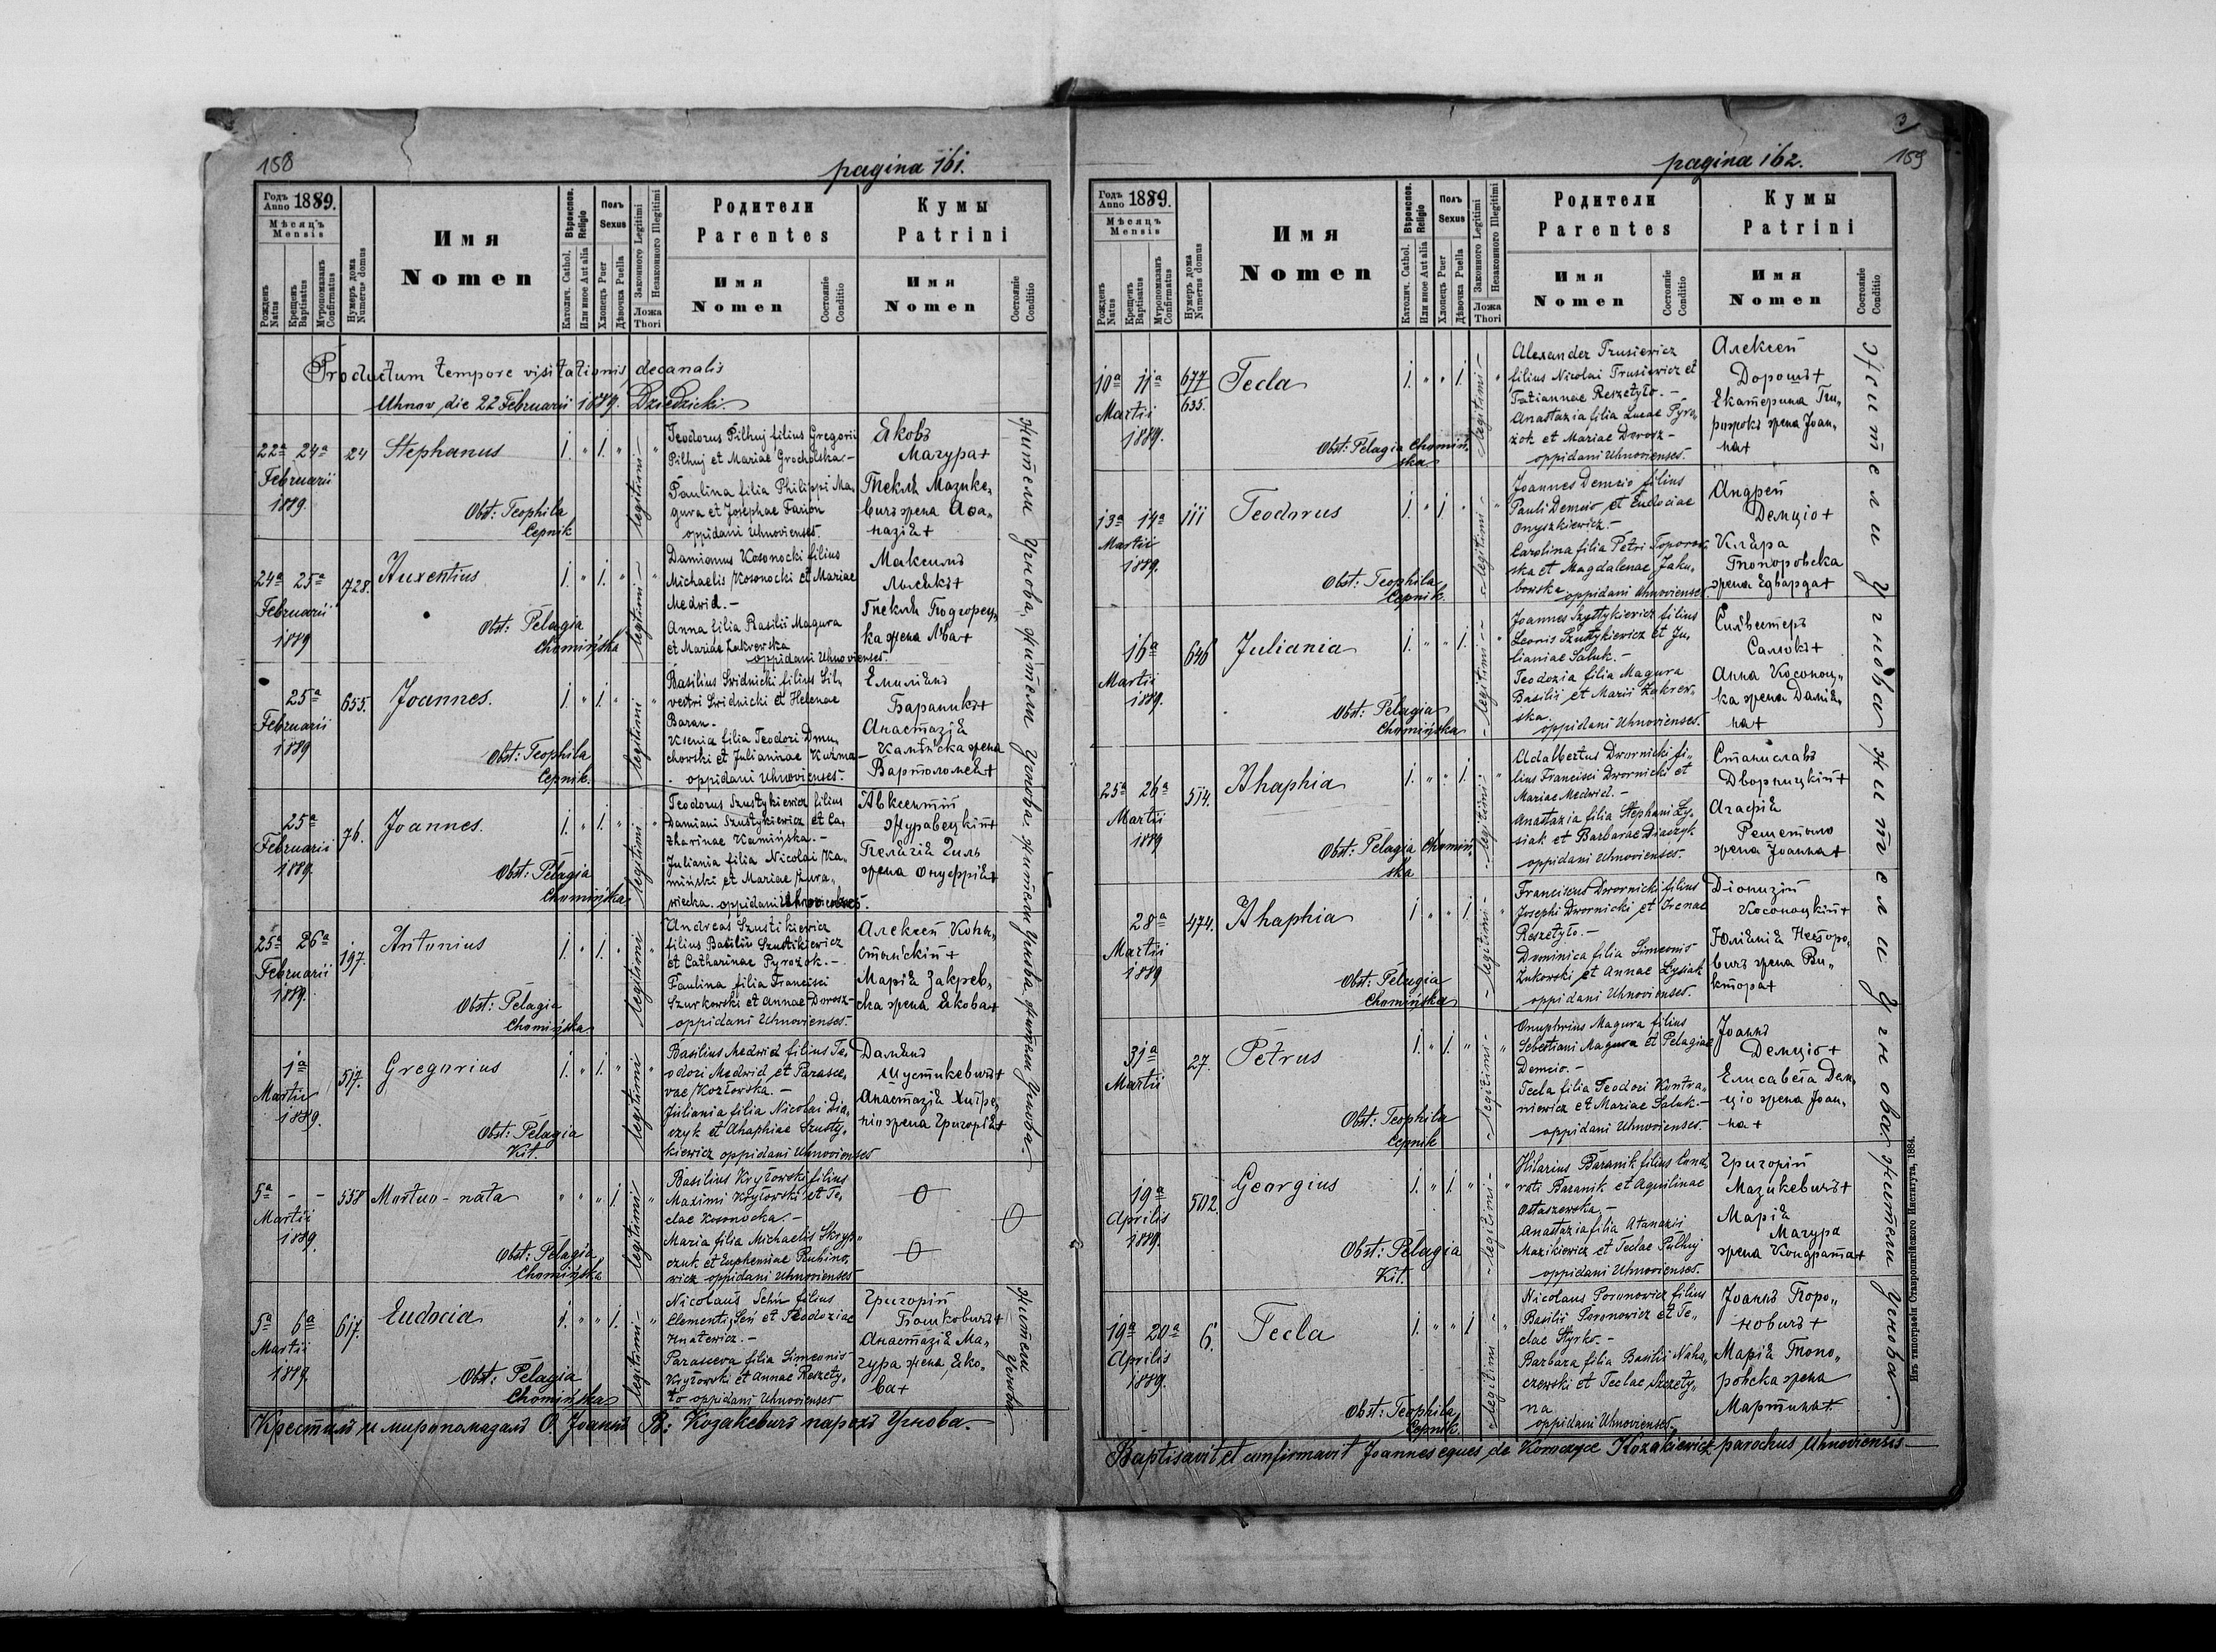 158
pagina 161.
Годъ Anno 1889.
Мѣсяцъ
Mensis
Рожденъ Natus
Крещенъ Baptisatus
Мѵропомазанъ Confirmatus
Нумеръ дома Numerus domus
Имя
Nomen
Вѣроиспов. Religio
Католич. Cathol.
Или иное Aut alia
Полъ Sexus
Хлопецъ Puer
Дѣвочка Puella
Законного Legitimi
Незаконного Illegitimi
Ложа Thori
Родители
Parentes
Имя
Nomen
Состоянie Conditio
Кумы
Patrini
Имя
Nomen
Состоянie Conditio
Productum tempore visitationis decanalis
Uhnov, die 22 Februarii 1889. Dziedzicki.
22ª 24ª
Februarii
1889.
24
Stephanus
Obst: Teophila
Cepnik
1. " 1. "
legitimi
Teodorus Pilhuj filius Gregorii
Pilhuj et Mariae Grocholska.-
Paulina filia Philippi Ma,
gura et Josephae Farion
oppidani Uhnovienses.
Яковъ
Магура+
Текля Мазике,
вичъ жена Аѳа,
назія+
24ª 25ª
Februarii
1889
728.
Auxentius
Obst: Pelagia
Chomińska
1. " 1. "
legitimi
Damianus Kosonocki filius
Michaelis Kosonocki et Mariae
Medwid.-
Anna filia Basilii Magura
et Mariae Zakrewska
oppidani Uhnovienses.
Максимъ
Лысякъ+
Текля Подгорец,
ка жена Льва+
25ª
Februarii
1889
655.
Joannes.
Obst: Teophila
Cepnik.
1. " 1. "
legitimi
Basilius Swidnicki filius Sil,
vestri Swidnicki et Helenae
Baran.
Ksenia filia Teodori Dmu,
chowski et Julianiae Kuzma-
oppidani Uhnovienses.
Емиліянъ
Бараникъ+
Анастазія
жена
Вартоломея+
25ª
Februarii
1889.
76.
Joannes.
Obst: Pelagia
Chomińska
1. " 1. "
legitimi
Teodorus Szustykiewicz filius
Damiani Szustykiewicz et Ca,
tharinae Kamińska.-
Juliania filia Nicolai Ka,
miński et Mariae Zura,
wiecka. oppidani Uhnovienses.
Авксентій
Журавецкій+
Пелагія Гиль
жена Онуфрія+
25ª 26ª
Februarii
1889.
197.
Antonius
Obst: Pelagia
Chomińska
1. " 1. "
legitimi
Andreas Szustikiewicz
filius Basilii Szustikiewicz
et Catharinae Pyrożok.-
Paulina filia Francisci
Szurkowski et Annae Dorosz-
oppidani Uhnovienses.
Алексѣй Конь,
стянскій+
Марія Закрев,
ска жена Якова+
1ª
Martii
1889.
517.
Gregorius
Obst: Pelagia
Kit.
1. " 1. "
legitimi
Basilius Medwid filius Te,
odori Medwid et Parasce,
vae Kozłowska.-
Juliania filia Nicolai Dia,
czyk et Ahaphiae Szusty,
kiewicz oppidani Uhnovienses
Даміянъ
Шустикевичъ+
Анастазія
жена Григорія+
5ª - -
Martii
1889.
558
Mortuo-nata
Obst: Pelagia
Chomińska
" " " 1. "
legitimi
Basilius Kryłowski filius
Maximi Kryłowski et Te,
clae Kosonocka.-
Maria filia Michaelis Skryp,
czuk et Euphemiae
oppidani Uhnovienses
5ª 6ª
Martii
1889.
617.
Eudocia
Obst: Pelagia
Chomińska
1. " " 1. "
legitimi
Nicolaus Seń filius
Clementis Seń et Teodoziae
Hnatewicz.-
Parasceva filia Simeonis
Kryłowski et Annae Reszety,
ło oppidani Uhnovienses
Григорій
Пошковичъ+
Анастазія Ма,
гура жена Яко,
ва+
жители Угнова. жители Угнова. жители Угнова. жители Угнова.
жители Угнова.
Крестилъ и миропомазалъ О. Іоаннъ В: Козакевичъ парохъ Угнова.
3
pagina 162.
159
Годъ Anno 1889.
Мѣсяцъ
Mensis
Рожденъ Natus
Крещенъ Baptisatus
Мѵропомазанъ Confirmatus
Нумеръ дома Numerus domus
Имя
Nomen
Вѣроиспов. Religio
Католич. Cathol.
Или иное Aut alia
Полъ Sexus
Хлопецъ Puer
Дѣвочка Puella
Законного Legitimi
Незаконного Illegitimi
Ложа Thori
Родители
Parentes
Имя
Nomen
Состоянie Conditio
Кумы
Patrini
Имя
Nomen
Состоянie Conditio
10ª 11ª
Martii
1889.
677
635.
Tecla
Obst: Pelagia Chomiń,
ska
1. " " 1. "
legitimi
Alexander Trusiewicz
filius Nicolai Trusiewicz et
Tatiannae Reszetyło.-
Anastazia filia Lucae Pyro,
żok et Mariae Dorosz-
oppidani Uhnovienses.
Алексѣй
Дорошъ+
Екатерина Пи,
рожокъ жена Іоан,
на+
13ª 14ª
Martii
1889.
111
Teodorus
Obst: Teophila
Cepnik.
1. " 1. " "
legitimi
Joannes Demcio filius
Pauli Demcio et Eudociae
Onyszkiewicz.-
Carolina filia Petri Toporow,
ska et Magdalenae Jaku,
bowska oppidani Uhnovienses
Андрей
Демціо+
Кляра
Топоровска
жена Едварда+
16ª
Martii
1889.
646
Juliania
Obst: Pelagia
Chomińska
1. " " 1. "
legitimi
Joannes Szustykiewicz filius
Leonis Szustykiewicz et Ju,
lianiae Saluk.-
Teodozia filia Magura
Basilii et Marii Zakrew,
ska.
oppidani Uhnovienses.
Сильвестеръ
Салюкъ+
Анна Косоноц,
ка жена Дамія,
на+
25ª 26ª
Martii
1889
514.
Ahaphia
Obst: Pelagia Chomiń,
ska
1. " " 1. "
legitimi
Adalbertus Dwornicki fi,
lius Francisci Dwornicki et
Mariae Medwid.-
Anastazia filia Stephani Ły,
siak et Barbarae Diaczyk
oppidani Uhnovienses.
Станиславъ
Дворницкій+
Агафія
Решетыло
жена Іоанна+
28ª
Martii
1889
474.
Ahaphia
Obst: Pelagia
Chomińska
1 " " 1. "
legitimi
Franciscus Dwornicki filius
Josephi Dwornicki et Irenae
Reszetyło.-
Dominica filia Simeonis
Zukowski et Annae Łysiak
oppidani Uhnovienses.
Діонизій
Косоноцкій+
Юліянія
жена Ви,
ктора+
31ª
Martii
27.
Petrus
Obst: Teophila
Cepnik
1. " 1. " "
legitimi
Onuphrius Magura filius
Sebestiani Magura et Pelagiae
Demcio.-
Tecla filia Teodori Kontra,
niewicz et Mariae Saluk.-
oppidani Uhnovienses.
Іоаннъ
Демціо+
Елисавета Дем,
ціо жена Іоан,
на+
19ª
Aprilis
1889.
502.
Georgius
Obst: Pelagia
Kit.
1. " 1. " "
legitimi
Hilarius Baranik filius Cond,
rati Baranik et Aquilinae
Ostaszewska.-
Anastazia filia Atanazii
Mazikiewicz et Teclae Pilhuj
oppidani Uhnovienses.
Григорій
Мазикевичъ+
Марія
Магура
жена Кондрата+
19ª 20ª
Aprilis
1889.
6.
Tecla
Obst: Teophila
Cepnik.
1. " " 1 "
legitimi
Nicolaus Poronowicz filius
Basilii Poronowicz et Te,
clae Hyrko.-
Barbara filia Basilii Naha,
czewski et Teclae Szczety,
na
oppidani Uhnovienses.
Іоаннъ Поро,
новичъ+
Марія Топо,
ровска жена
Мартина+
жители Угнова жители Угнова жители Угнова.
Baptisavit et confirmavit Joannes eques de Koroczyce Kozakiewicz parochus Uhnoviensis
Изъ типографіи Ставропигійского Института, 1884.